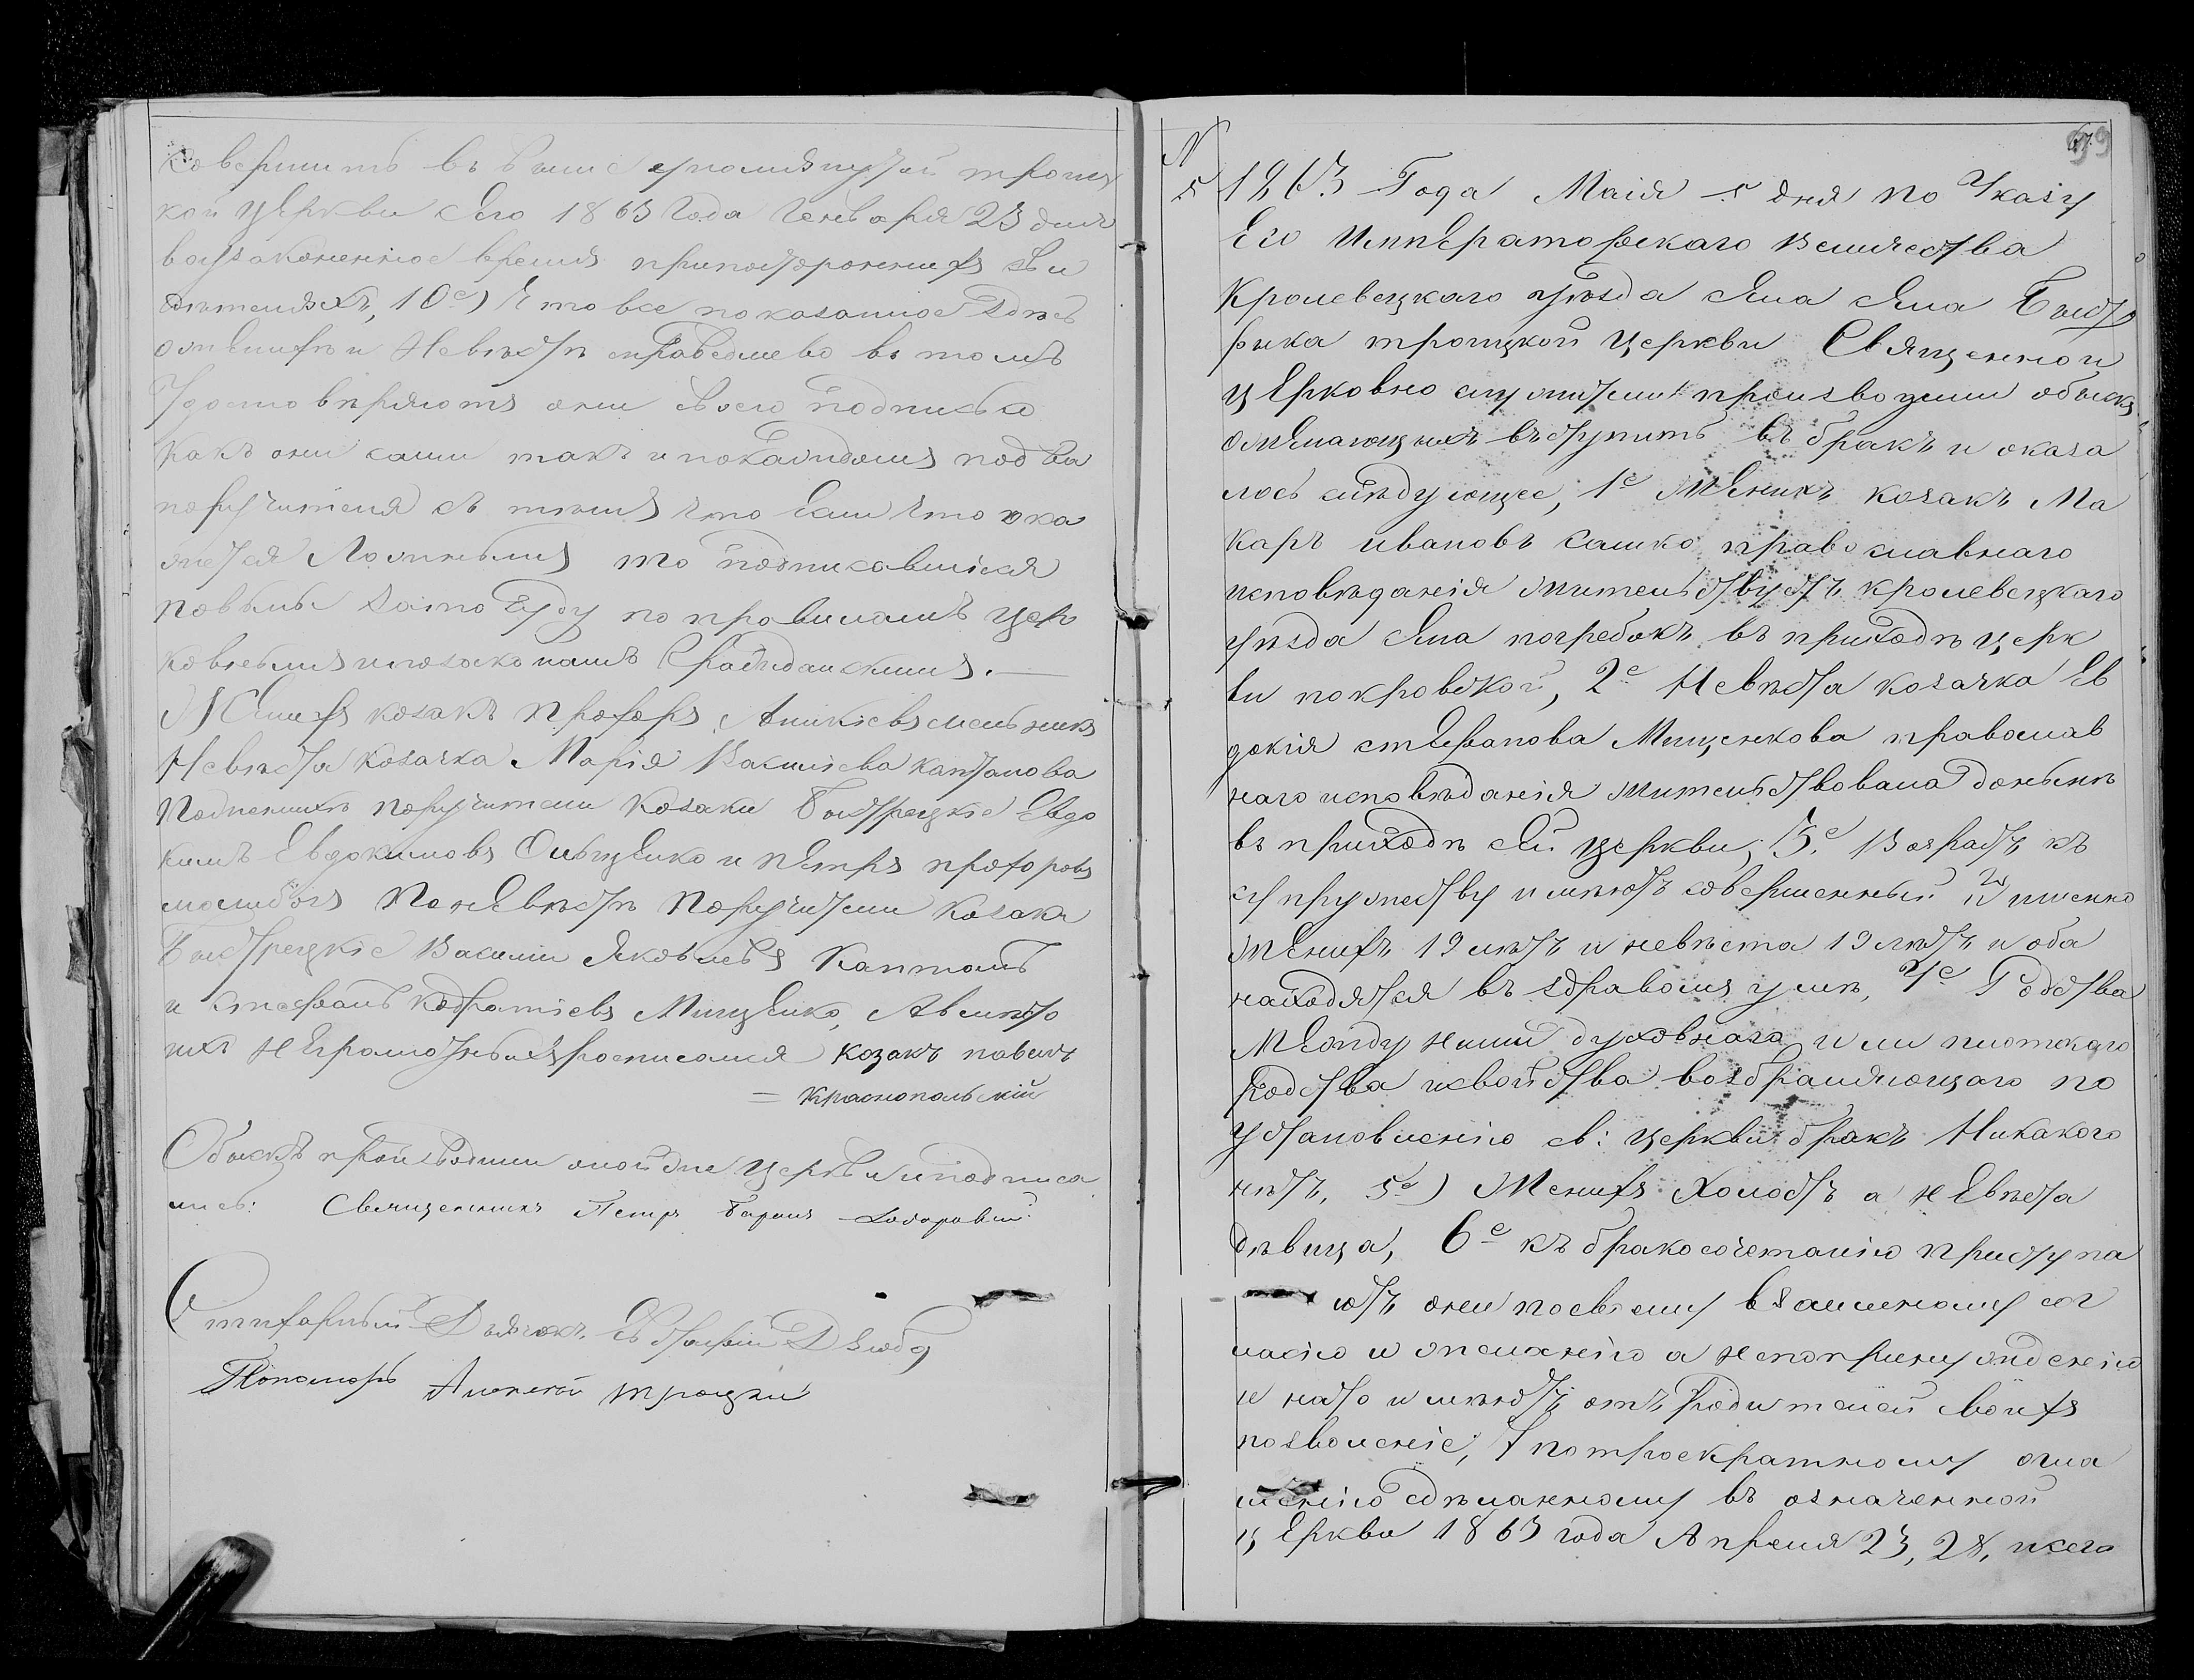 совершить въ выше упомянутой троиц
кой церкви сего 1863 года Генваря 23 дня
воузаконенное время припостороннихъ сви
дѣтеляхъ, 10е) Что все показанное здѣсь
оженихѣ и Невѣстѣ справедлево въ томъ
Удостовѣряютъ они своею подписью
какъ они сами такъ и покаждомъ подва
поручителя съ тѣмъ что Если что ока
жется Ложнымъ то подписавшіися
повыны зато буду по правиламъ цер
ковнымъ ипозаконамъ Гражданскимъ.
Женихъ козакъ Прохоръ Аникіевъ мельникъ
Невѣста козачка Марія Василіева каптанова
Поженихѣ поручители козаки быстрецкіе Евдо
кимъ Евдокимовъ Ольщенко и пЕтръ прохоровъ
Поневѣстѣ Поручители козаки
Быстрецкіе Василій Яковлевъ Каптанъ
и Стефанъ кодратіевъ МищЕнко, Авмѣсто
ихъ нЕграмотныхъ росписался козакъ павелъ
= Краснопольскій
Обыскъ производили оной же Церкви иподписа
лись: Священникъ Петръ
Стихарный Дьячокъ Евстафій Дзюба
Пономарь Алексей троцкій
67
99
N
5
1863 Года Маія 5 дня по Указу
Его ИмпЕраторскаго величества
Кролевецкаго уѣзда сЕла сЕла Быст
рыка троицкой Церкви Священно и
цЕрковно служители производили обыскъ
ожелающихъ вступить въ бракъ и оказа
лось слѣдующее, 1е жЕнихъ козакъ Ма
каръ ивановъ Сашко православнаго
исповѣданія жительствуетъ кролевецкаго
уѣзда сЕла погребокъ въ приходѣ церк
ви покровской, 2е Невѣста козачка Ев
докія стЕфанова Мищенкова православ
наго исповѣданія жительствовала донынѣ
въ приходѣ сЕй церкви, 3е Возрастъ къ
супружеству имѣютъ совершенный и именно
жЕнихъ 19 лѣтъ и невѣста 19 лѣтъ и оба
находятся въ здравомъ умѣ, 4е Родства
мЕжду ними духовнаго или плотскаго
родства исвойства возбраняющаго по
установленію св: церкви бракъ Никакого
нѣтъ, 5е) Женихъ Холостъ а нЕвѣста
дѣвица, 6е къ бракосочетанію приступа
ютъ они посвоему взаимному сог
ласію и желанію а непопринужденію
и нато имѣютъ отъ родителей своихъ
позволеніе, 7 потроекратному огла
шенію сдѣланному въ означенной
цЕркви 1863 года Апреля 23, 28, исего